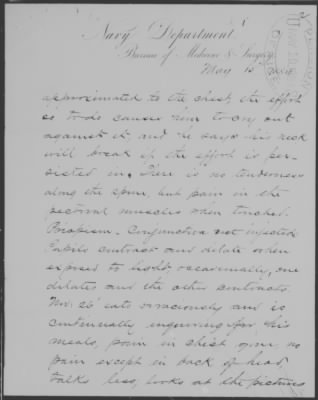 Navy Department,
Bureau of Medicine & Surgery
May 15
approximated to the chest, the effort
so to do causes him to cry out
against it and he says his neck
will break if the effort is per-
sisted in. There is no tenderness
along the spine, but pain in the
pectoral muscles when touched.
Priapism. Conjunctiva not injected
Pupils contract and dilate when
exposed to light, occasionally, one
dilates and the other contracts.
Nov. 26 eats voraciously and is
continually enquiring for his
meals, pain in chest gone, no
pain except in back of head
talks less, looks at the pictures